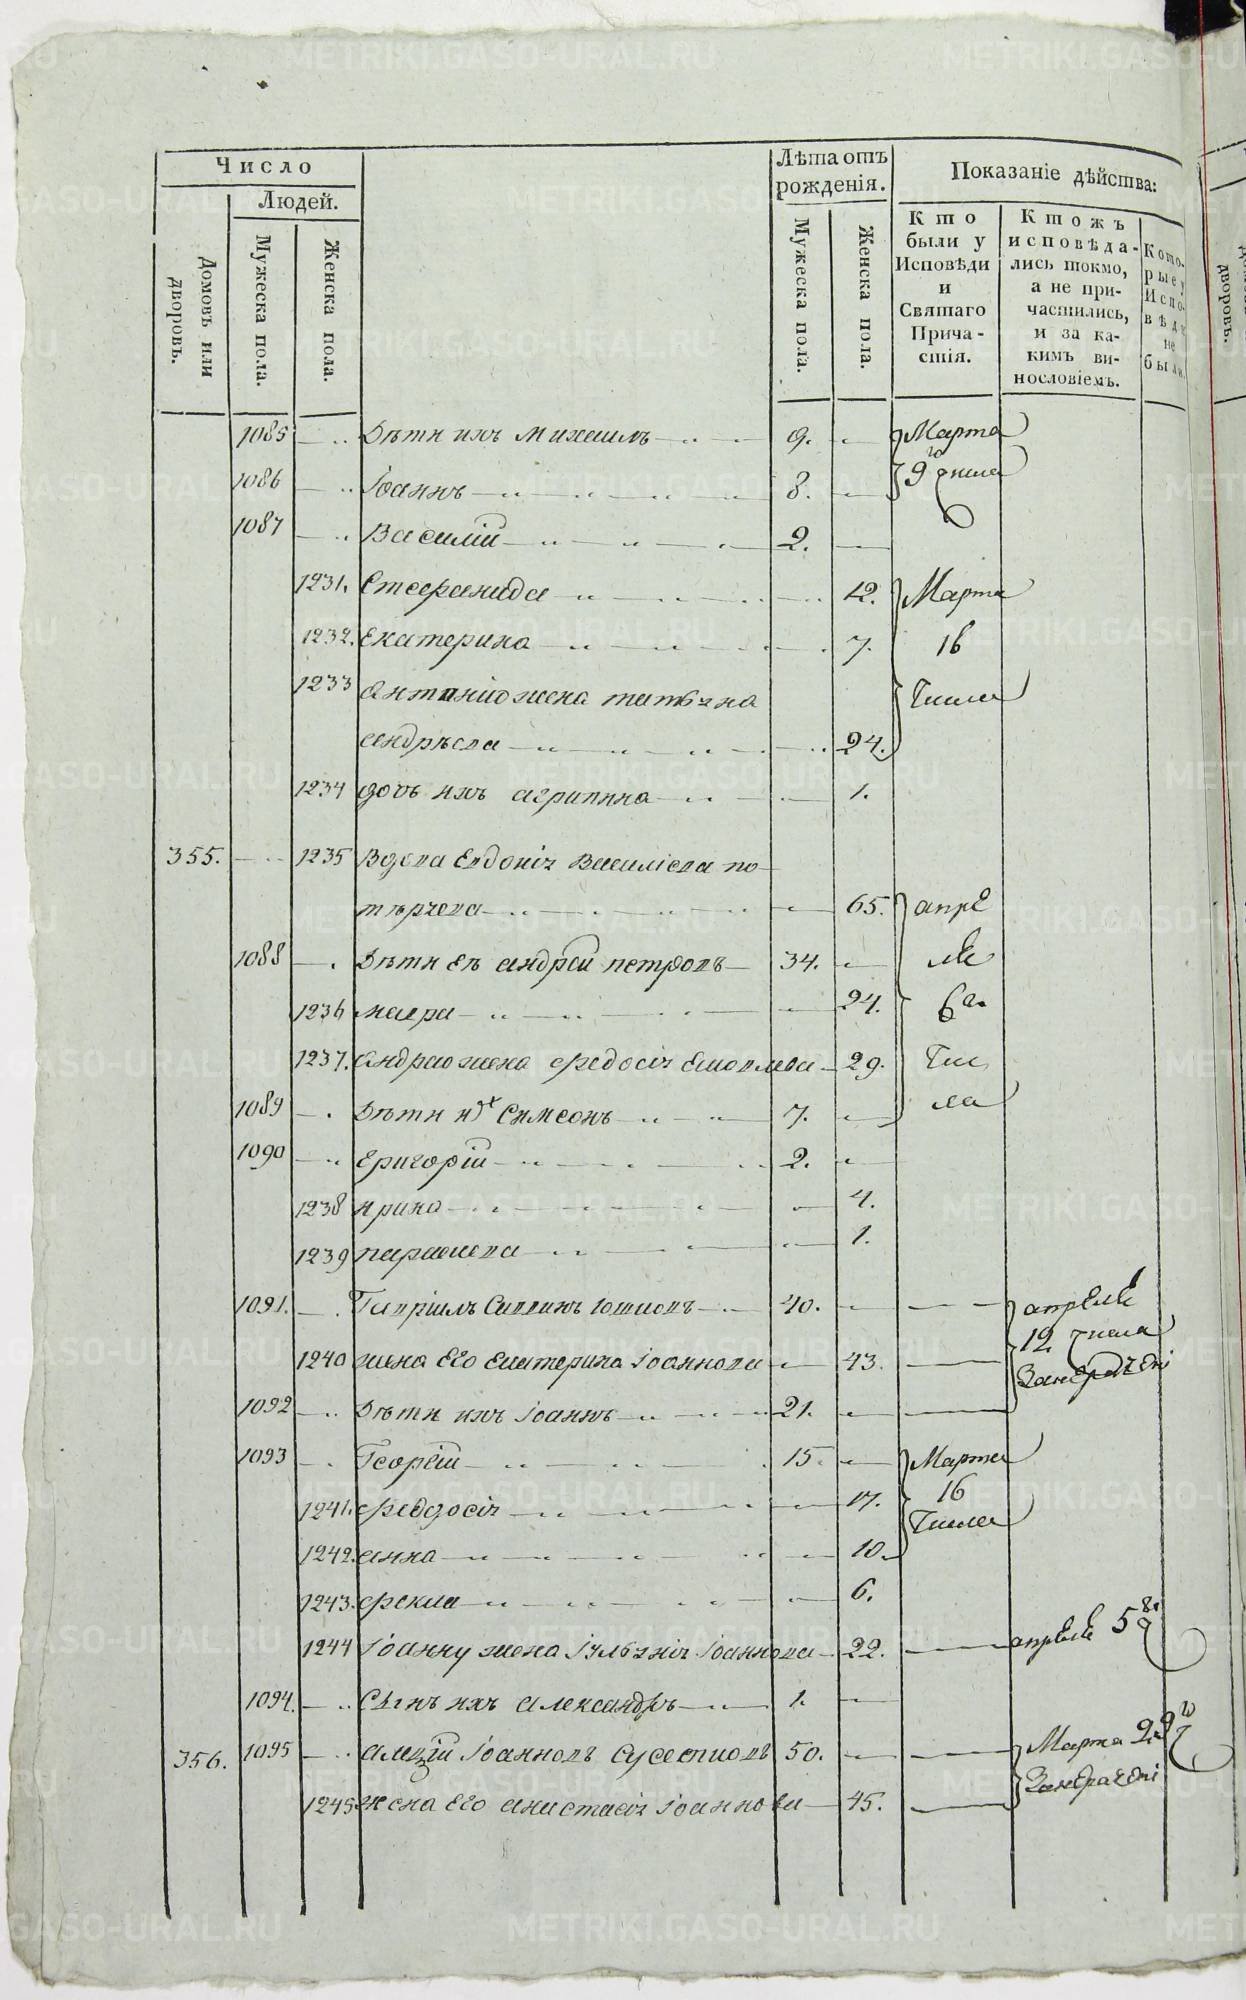 Число
Людей.
Домовъ или дворовъ.
Мужеска пола.
Женска пола.
Лѣта отъ рожденія.
Мужеска пола.
Женска пола.
Показаніе дѣйства:
Кто были у Исповѣди и Святаго Причастія.
Ктожъ исповѣдались токмо, а не причастились, и за какимъ винословіемъ.
Которые у Исповѣди не были.
1085 Дѣти ихъ Михаилъ 9. Марта
1086 Іоаннъ 8. 9го числа
1087 Василій 2.
1231. Стефанида 12. Марта
1232. Екатерина 7. 16
1233 Антонію жена татьяна числа
андрѣева 24.
1234 дочь ихъ агрипина 1.
355. 1235 Вдова Евдокія Василіева по-
65. апре
1088 Дѣти Ея андрей петровъ 34. ле
1236 мавра 24. 6го
1237. андрею жена федосія 29. чис
1089 Дѣти их Симеонъ 7. ла
1090 григорій 2.
1238 ирина 4.
1239 параскева 1.
1091. Гавріилъ 40. апреле
12 числа
1240 жена Его Екатерина Іоаннова 43.
1092 Дѣти ихъ Іоаннъ 21.
1093 Георгій 15. Марта
1241. феодосія 17. 16
числа
1242. анна 10.
1243. фекла 6.
1244 Іоанну жена Іульянія Іоаннова 22. апреле 5
1094. Сынъ ихъ александръ 1.
356. 1095 Іоанновъ 50. Марта
1245 Жена Его анастасія Іоаннова 45.
METRIKI.GASO-URAL.RU